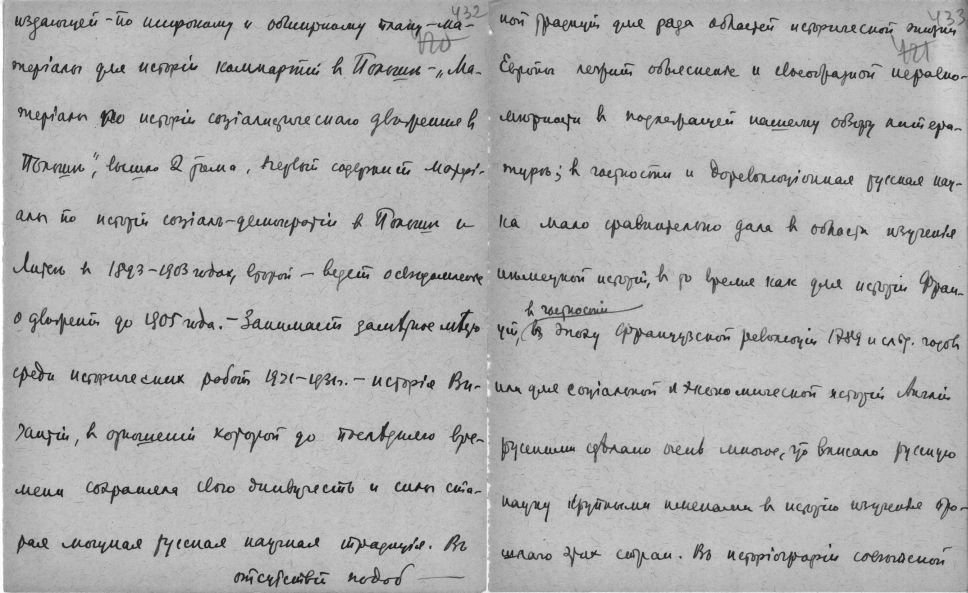 432
120
издающей - по широкому и обширному плану - ма-
теріалы для исторіи компартіи в Польши - „Ма-
теріалы по исторіи соціалистическаго движения в
Польши", вышло 2 тома, первый содержит матері-
алы по исторіи соціаль-демократіи в Польши и
Литвы в 1893-1903 годах, второй - ведет
о движеніи до 1905 года. - Занимает замѣтное мѣсто
среди исторических работ 1921-1931 г. - исторія Ви-
зантіи, в отношеніи которой до послѣдняго вре-
мени сохранила свою живучесть и силы ста-
рая могучая русская научная традиція. Въ
отсутствіи подоб
433
121
ной традиціи для ряда областей исторической жизни
Европы лежит объясненіе и своеобразной неравно-
мѣрности в подлежащей нашему обзору литера-
туры; в частности и дореволюціонная русская нау-
ка мало сравнительно дала в области изученія
нѣмецкой исторіи, в то время как для исторіи Фран-
в частности
ціи, в эпоху Французской революціи 1789 и слѣд. годов
или для соціальной и экономической исторіи Англіи
русскими сдѣлано очень многое, что вписало русскую
науку крупными именами в исторію изученія про-
шлаго этих стран. Въ исторіографіи совѣтской